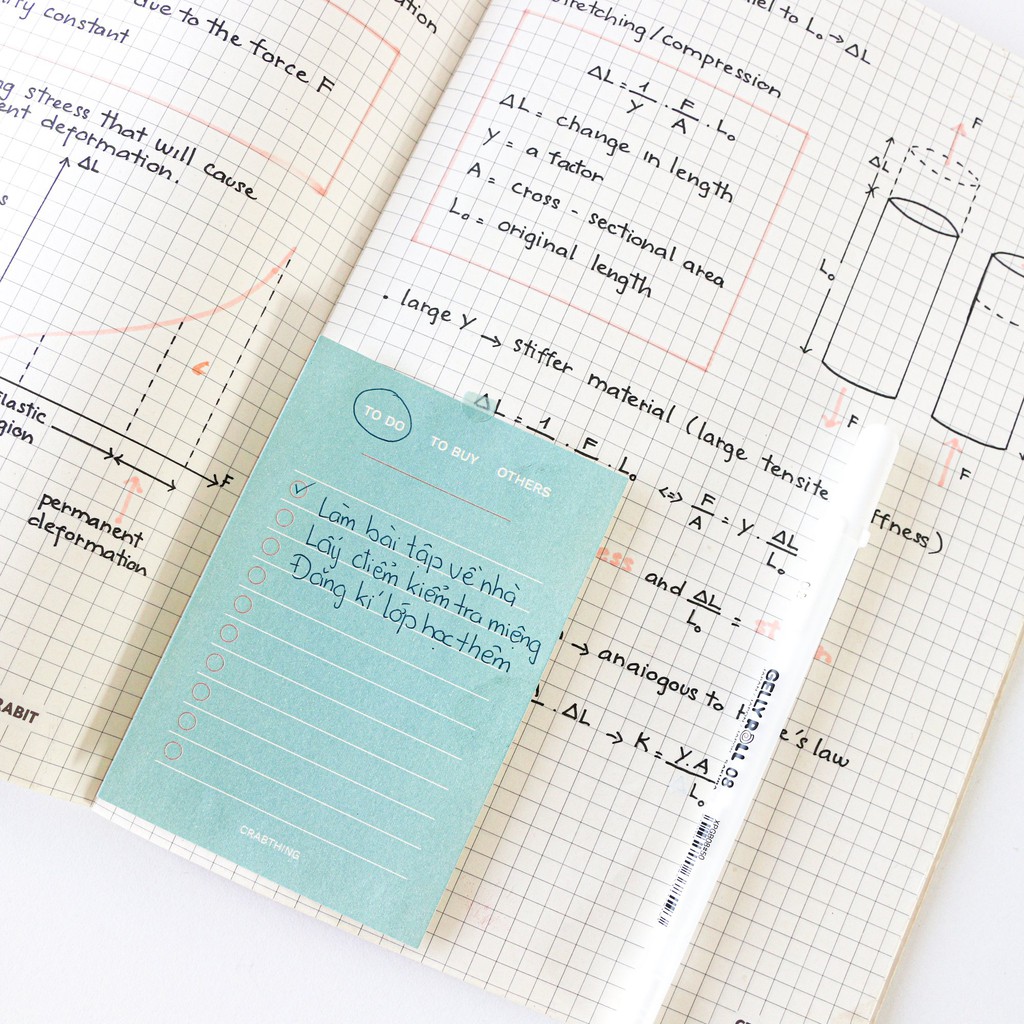 due to the force F
constant
stress that will cause
deformation.
ΔL
F
Elastic
permanent
deformation
RABIT
to L₀ → ΔL
stretching/compression
ΔL = 1/Y · F/A · L₀
ΔL = change in length
Y = a factor
A = cross - sectional area
L₀ = original length
F
ΔL
L₀
F
F
• large Y → stiffer material (large tensite
ffness)
ΔL = 1 · F · L₀ <=> F/A = Y · ΔL/L₀
and ΔL/L₀ =
→ anaiogous to
e's law
· ΔL → K = Y.A/L₀
TO DO TO BUY OTHERS
✓ Làm bài tập về nhà
Lấy điểm kiểm tra miệng
Đăng kí lớp học thêm
CRABTHING
GELLY ROLL 08
XPGB08#50